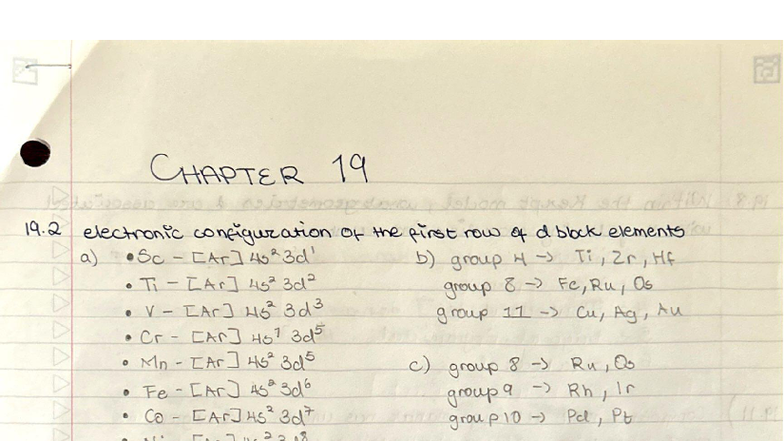 CHAPTER 19
19.2 electronic configuration of the first row of d block elements
a) • Sc - [Ar] 4s² 3d¹
• Ti - [Ar] 4s² 3d²
• V - [Ar] 4s² 3d³
• Cr - [Ar] 4s¹ 3d⁵
• Mn - [Ar] 4s² 3d⁵
• Fe - [Ar] 4s² 3d⁶
• Co - [Ar] 4s² 3d⁷
b) group 4 -> Ti, Zr, Hf
group 8 -> Fe, Ru, Os
group 11 -> Cu, Ag, Au
c) group 8 -> Ru, Os
group 9 -> Rh, Ir
group 10 -> Pd, Pt